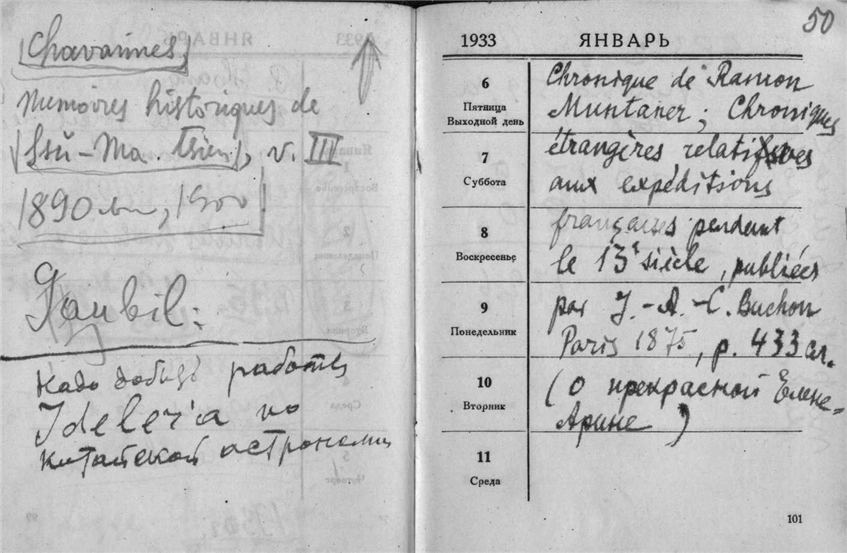 Chavannes
Memoires historiques de
Ssŭ-Ma. Tsien, v. III
1890, 1900
Gaubil:
надо добыть работы
Ideler'а по
китайской астрономии
50
1933 ЯНВАРЬ
6
Пятница
Выходной день
Chronique de Ramon
Muntaner; Chroniques
7
Суббота
étrangères relatives
aux expéditions
8
Воскресенье
françaises pendant
le 13e siècle, publiées
9
Понедельник
par J.-A.-C. Buchon
Paris 1875, p. 433 сл.
10
Вторник
(о прекрасной Елене-
Арине)
11
Среда
101